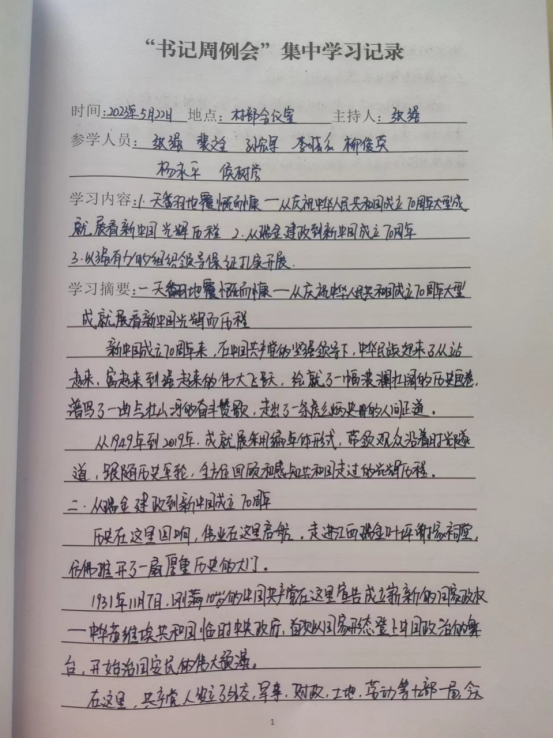 “书记周例会”集中学习记录
时间:2023年5月22日 地点:村部会议室 主持人:张强
参学人员:张强 柳俊英
杨永平 侯树学
学习内容:1.天翻地覆慨而慷——从庆祝中华人民共和国成立70周年大型成
就展看新中国光辉历程 2.从瑞金建政到新中国成立70周年
3.以强有力的组织领导保证扎实开展.
学习摘要:一天翻地覆慨而慷——从庆祝中华人民共和国成立70周年大型
成就展看新中国光辉历程
新中国成立70周年来,在中国共产党的坚强领导下,中华民族迎来了从站
起来、富起来到强起来的伟大飞跃,绘就了一幅波澜壮阔的历史画卷,
谱写了一曲气壮山河的奋斗赞歌,走出了一条彪炳史册的人间正道。
从1949年到2019年,成就展采用编年体形式,带领观众沿着时光隧
道,跟随历史车轮,全方位回顾和感知共和国走过的光辉历程。
二.从瑞金建政到新中国成立70周年
历史在这里回响,伟业在这里启航,走进江西瑞金叶坪谢氏祠堂,
仿佛推开了一扇厚重历史的大门。
1931年11月7日,刚满10岁的中国共产党在这里宣告成立崭新的国家政权
——中华苏维埃共和国临时中央政府,首次以国家形态登上中国政治的舞
台,开始治国安民的伟大预演。
在这里,共产党人设立了外交、军事、财政、土地、劳动等九部一局,今
1